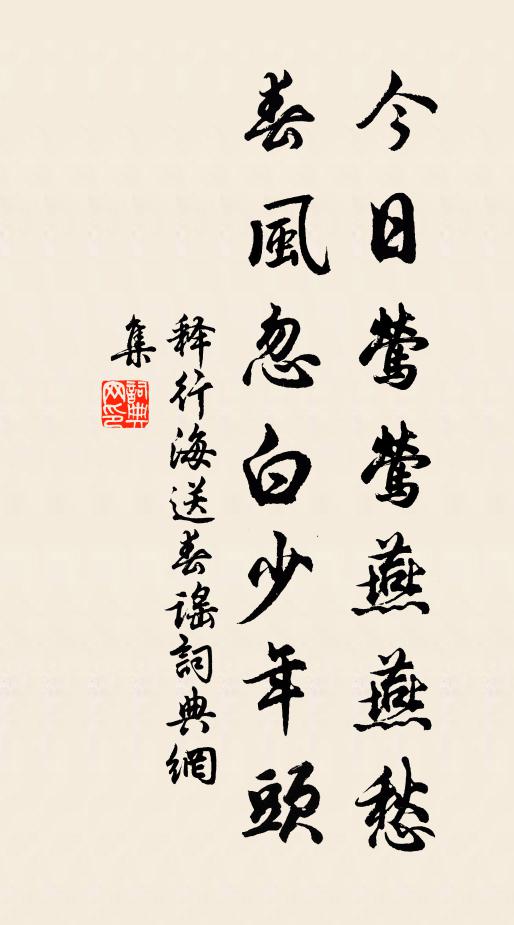 今日鶯鶯燕燕愁
春風忽白少年頭
释行海送春谣詞典網
集
詞典网印